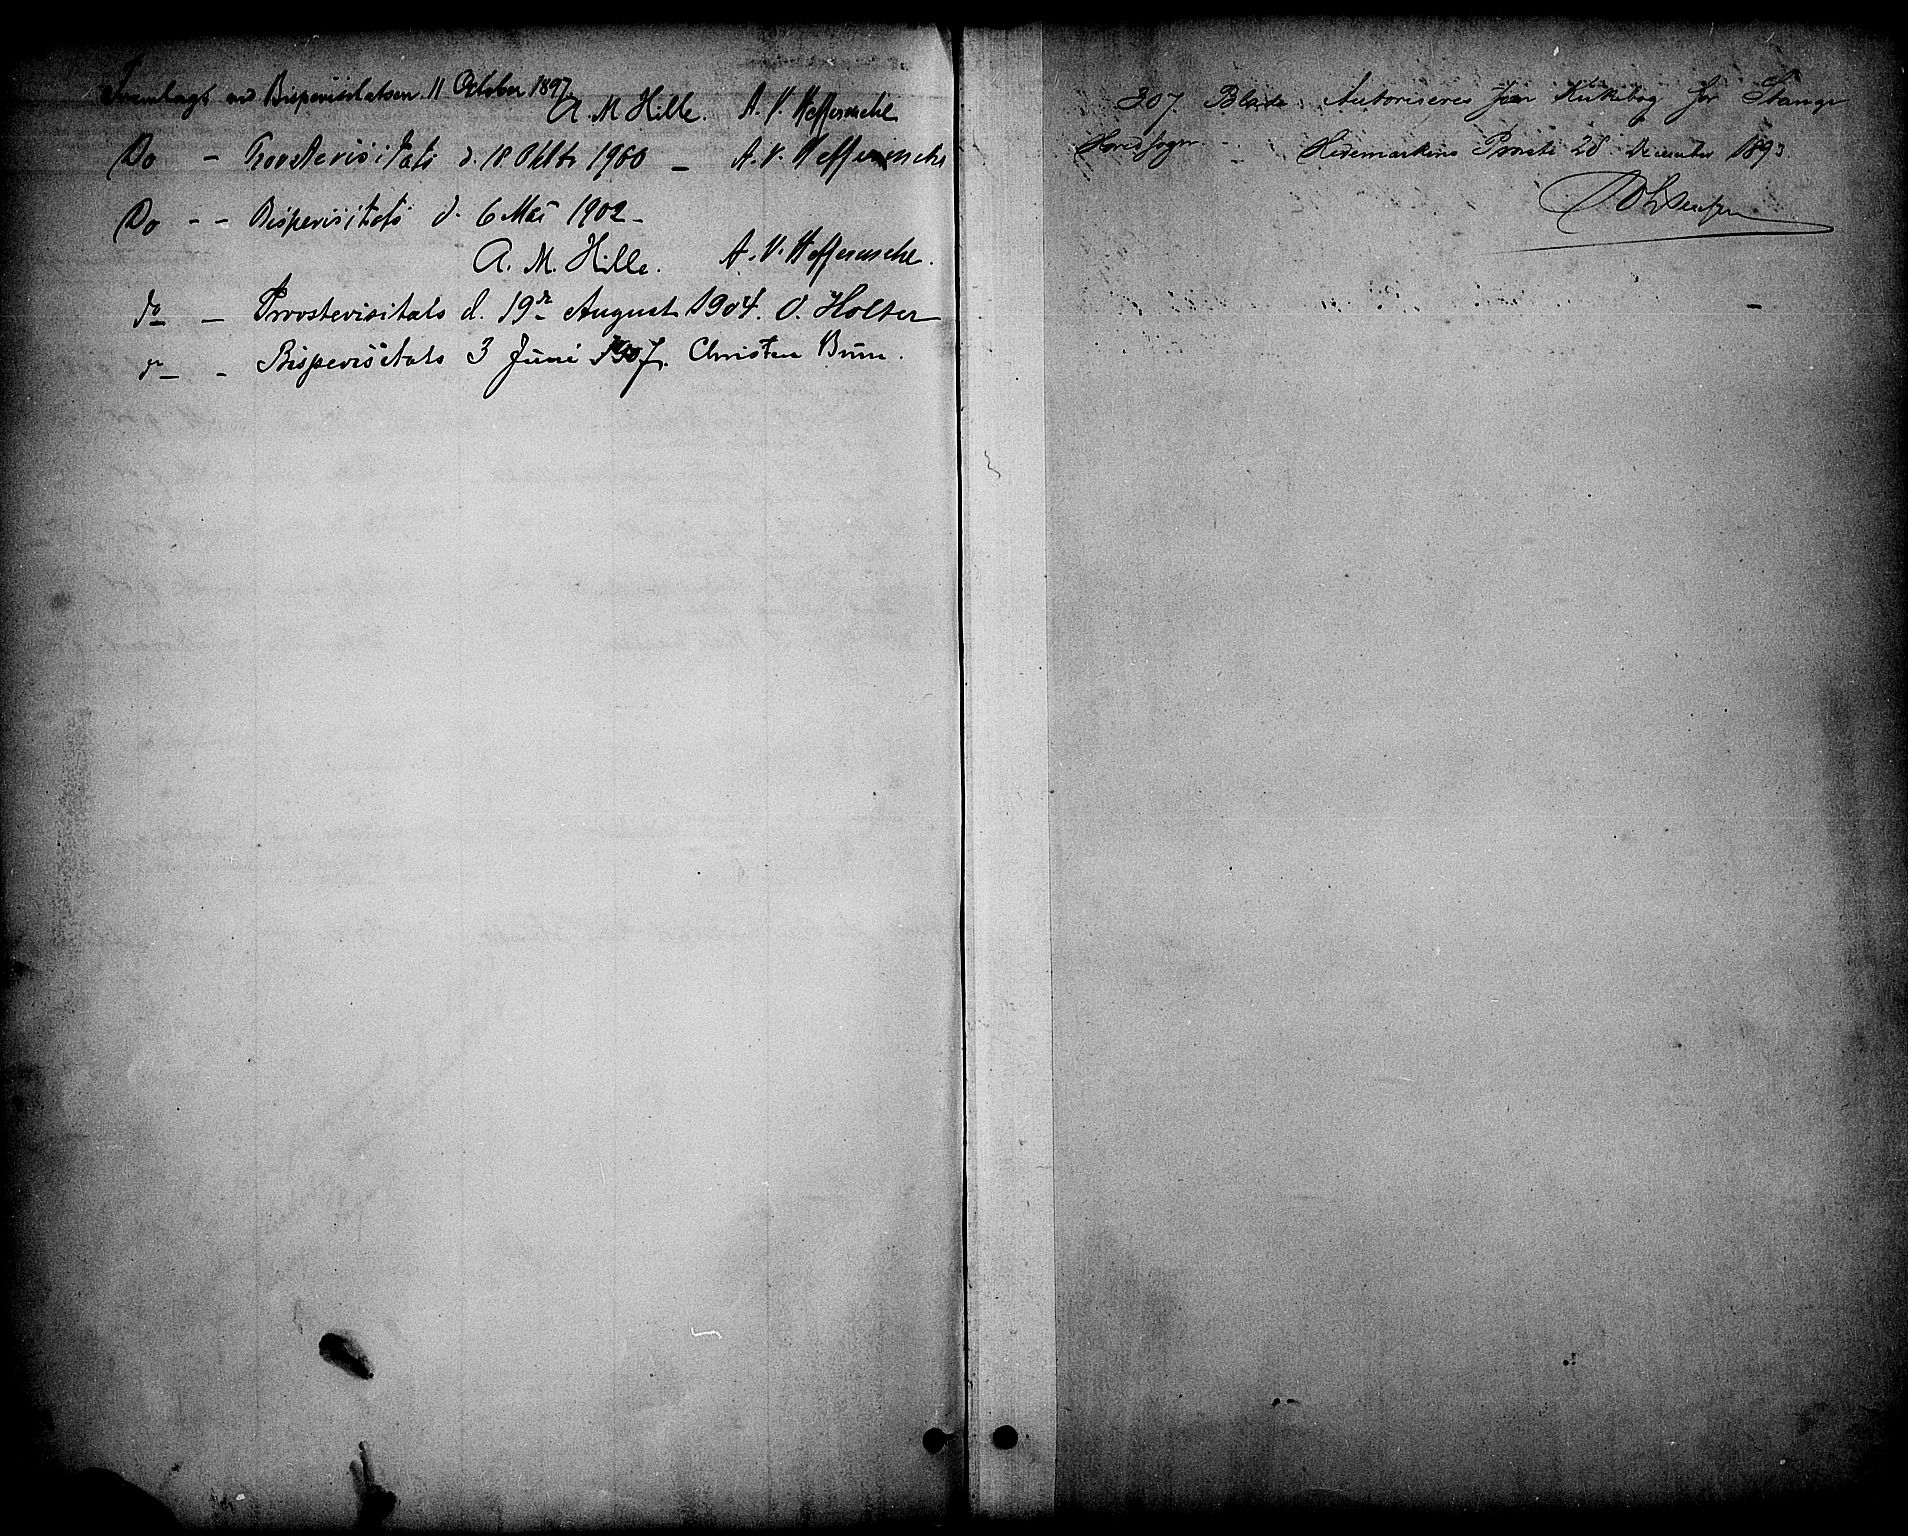 Fremlagt ved Bispevisitatsen 11 October 1897.
A. M Hille. A. V. Heffermehl
Do - Provstevisitats d. 18 Oktb 1900 - A. V. Heffermehl
Do - - Bispevisitats d. 6 Mai 1902 -
A. M. Hille. A. V. Heffermehl.
do - Provstevisitats d. 19de August 1904. O. Holter
do - Bispevisitats 3 Juni 1907. Christen Brun.
307 Blade Autoriseres som Kirkebog for Stange
Hovedsogn. Hedemarkens Provsti 28 December 1893